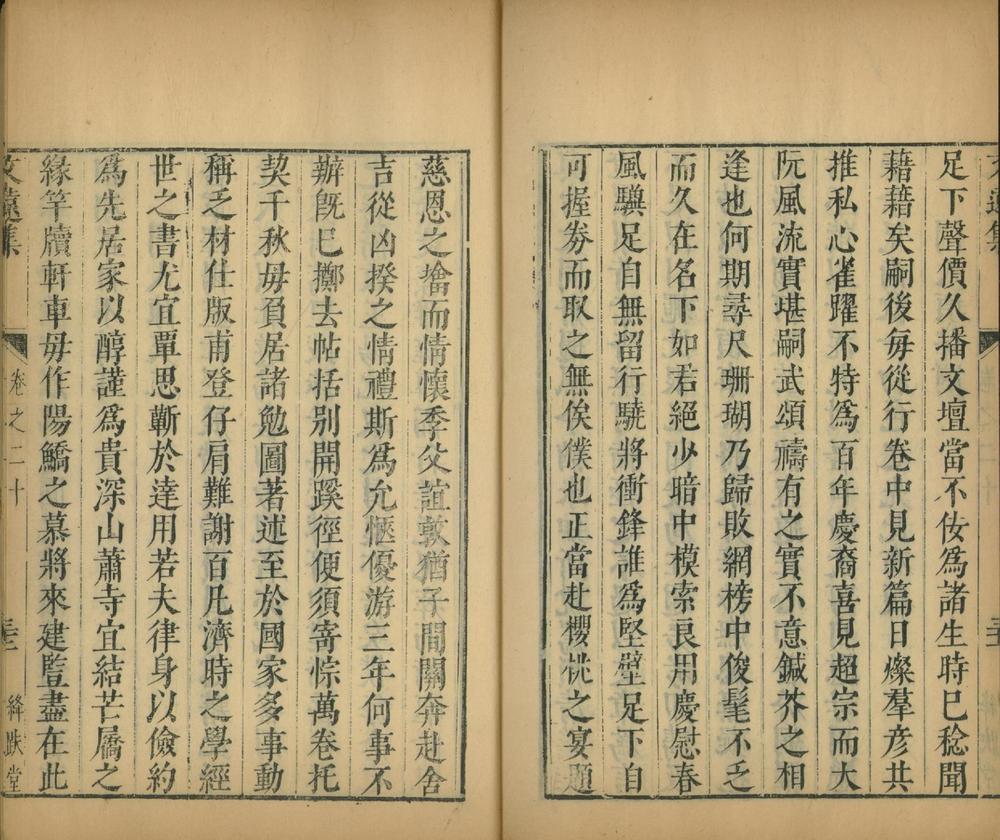 足下聲價久播文壇當不佞爲諸生時巳稔聞
藉藉矣嗣後每從行卷中見新篇日燦羣彦共
推私心雀躍不特爲百年慶裔喜見超宗而大
阮風流實堪嗣武頌禱有之實不意鍼芥之相
逢也何期尋尺珊瑚乃歸敗網榜中俊髦不乏
而久在名下如君絕少暗中模索良用慶慰春
風驥足自無留行驍將衝鋒誰爲堅壁足下自
可握券而取之無俟僕也正當赴櫻桃之宴題
慈恩之墖而情懷季父誼敦猶子間關奔赴舍
吉從凶揆之情禮斯爲允愜優游三年何事不
辦旣巳擲去帖括別開蹊徑便須寄悰萬卷托
契千秋毋負居諸勉圖著述至於國家多事動
稱乏材仕版甫登仔肩難謝百凡濟時之學經
世之書尤宜覃思蘄於達用若夫律身以儉約
爲先居家以醇謹爲貴深山蕭寺宜結芒屩之
緣竿牘軒車毋作陽鱎之慕將來建豎盡在此
文遠集
卷之二十
絳趺堂